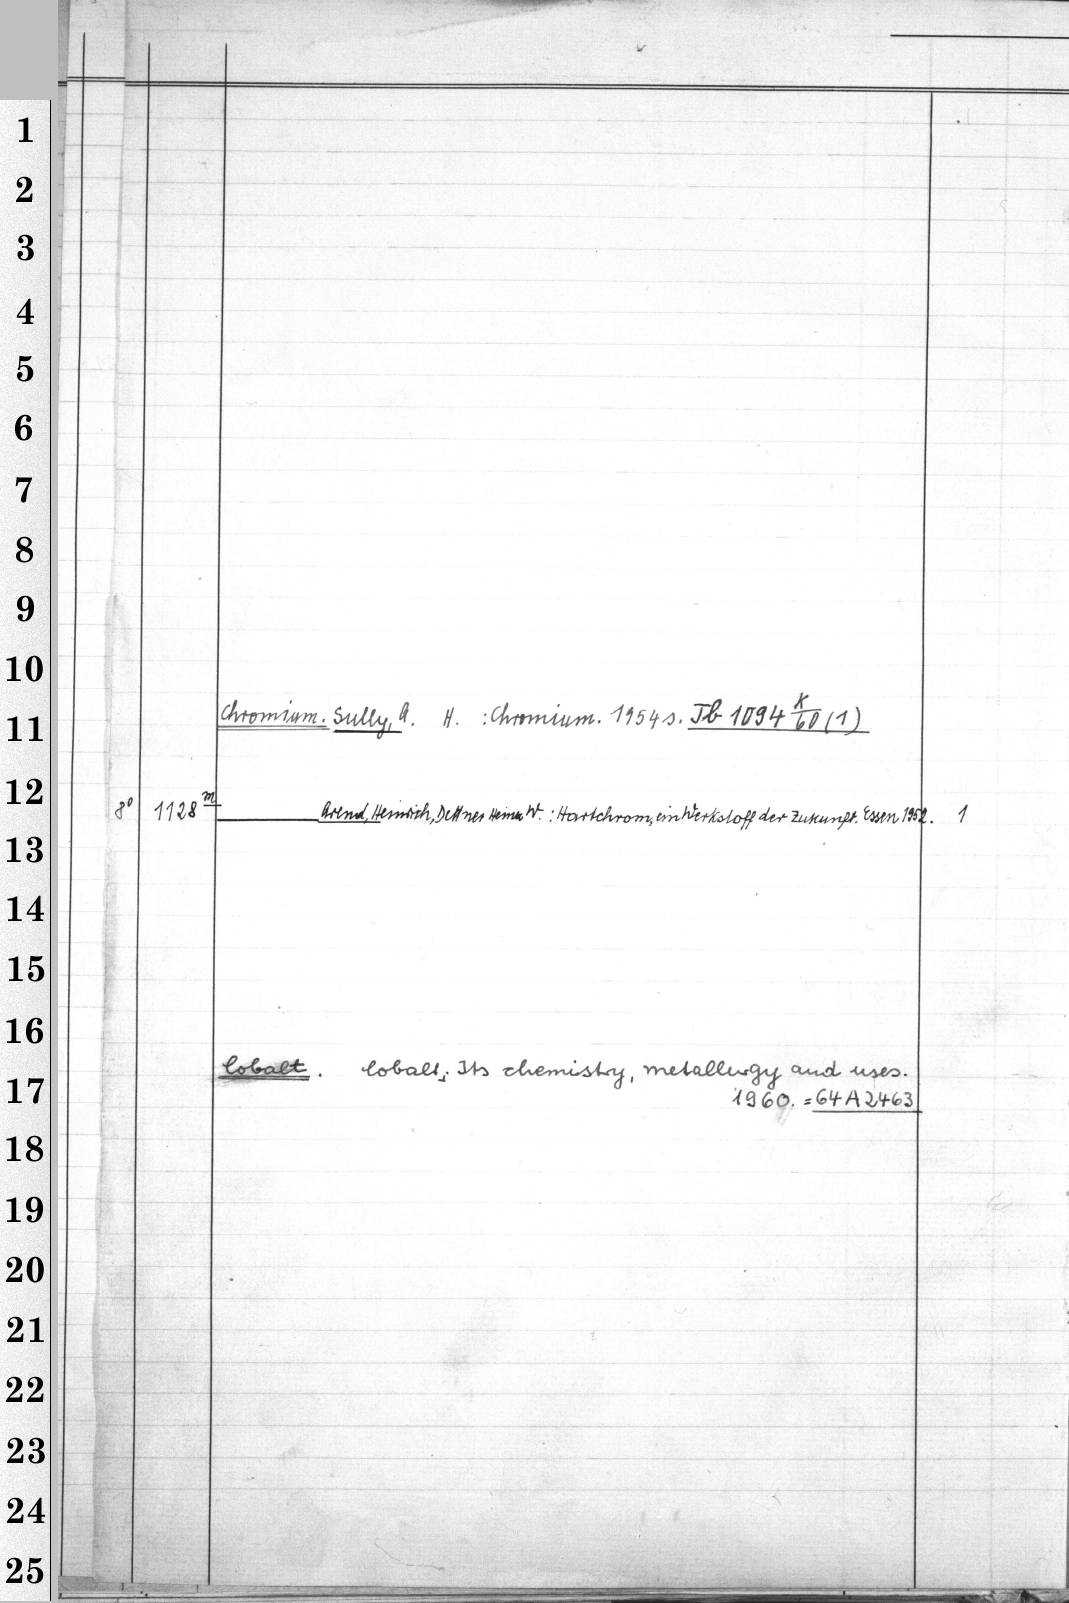 1
2
3
4
5
6
7
8
9
10
Chromium. Sully, A. H. : Chromium. 1954 s. Jb 1094 K/60 (1)
11
12
8° 1128 m Arend, Heinrich, Dettner Heinr. W. : Hartchrom, ein Werkstoff der Zukunft. Essen 1952. 1
13
14
15
16
Cobalt. Cobalt; Its chemistry, metallurgy and uses.
17
1960. = 64 A 2463
18
19
20
21
22
23
24
25